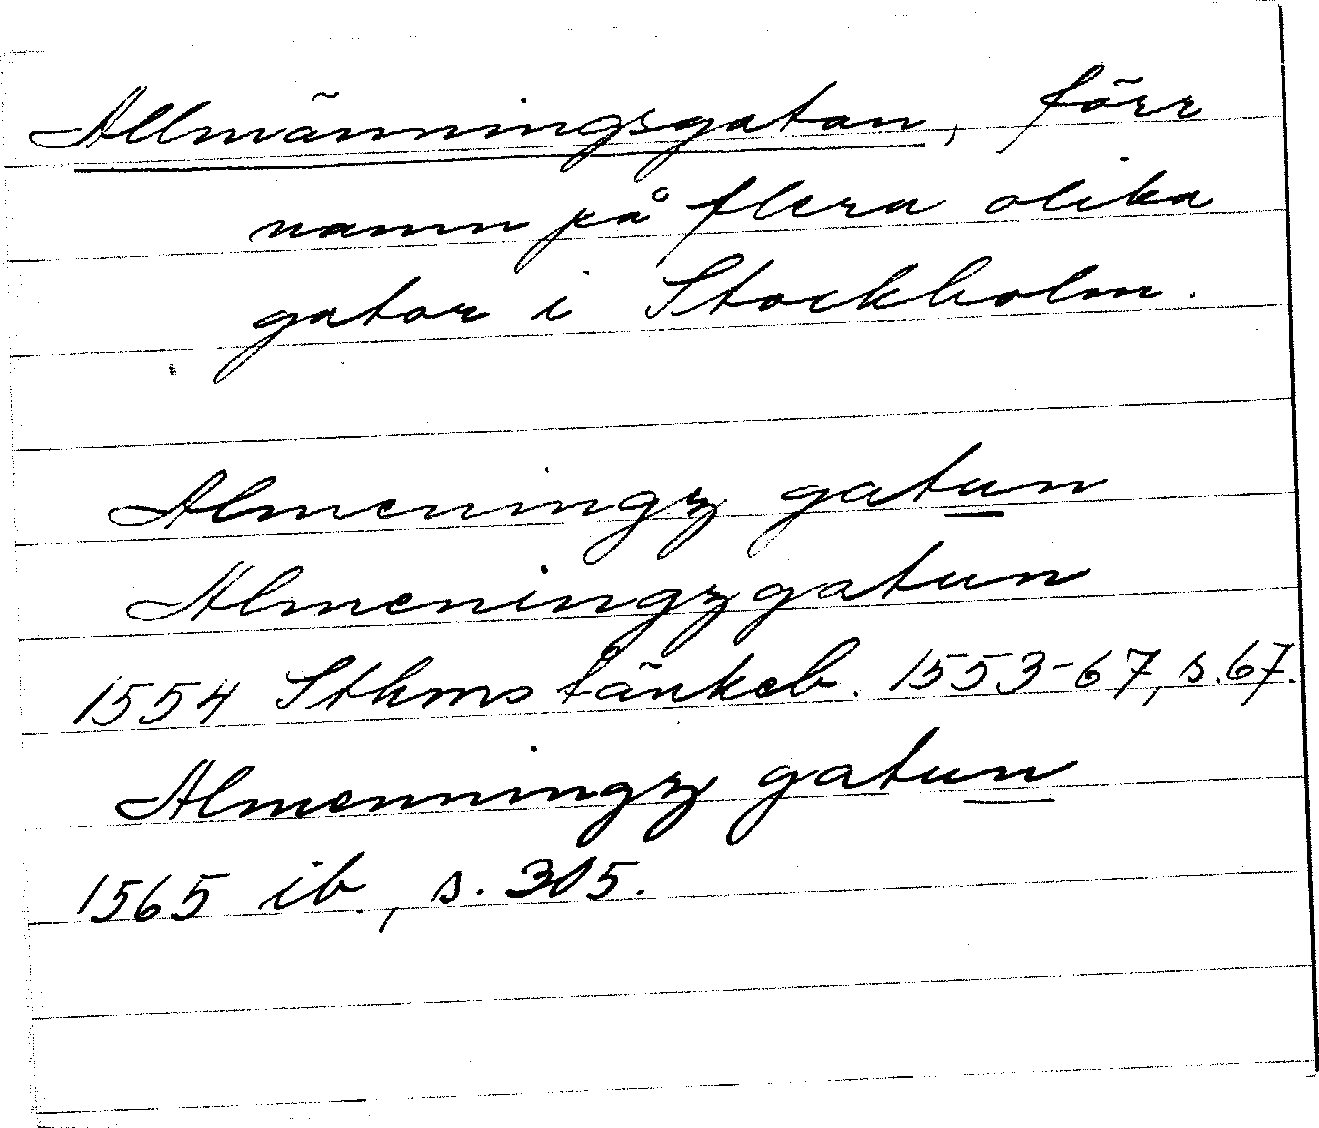 Allmänningsgatan, förr
namn på flera olika
gator i Stockholm.
Almeningz gatun
Almeningzgatun
1554 Sthms tänkeb. 1553-67, s. 67.
Almenningz gatun
1565 ib., s. 305.